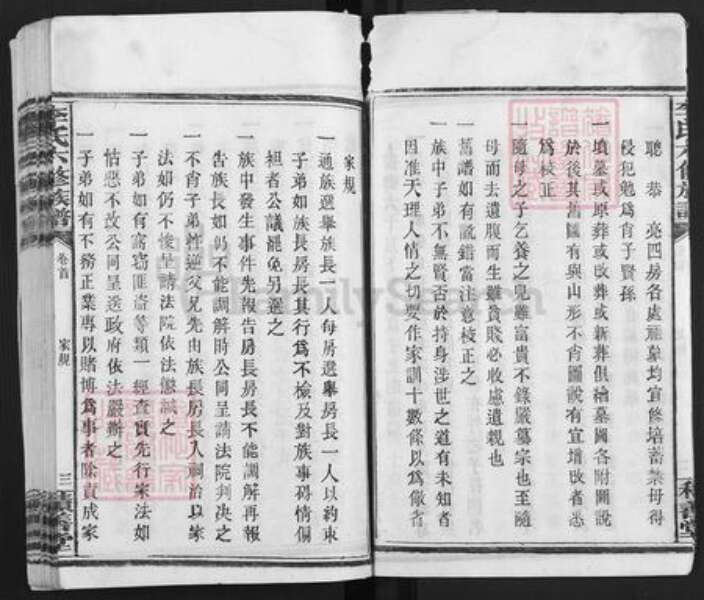 聰 恭 亮四房各處雁象均宜修培蓄禁毋得
侵犯勉爲肖子賢孫
一墳墓或原葬或改葬或新葬俱繪墓圖各附圖說
於後其舊圖有與山形不肖圖說有宜增改者悉
爲校正
一隨母之子乞養之兒雖富貴不錄嚴墓宗也至隨
母而去遺腹而生雖貧賤必收慮遺親也
一舊譜如有訛錯當注意校正之
一族中子弟不無賢否於持身涉世之道有未知者
因准天理人情之切要作家訓十數條以爲儆省
李氏六修族譜
卷首
家規
三
家規
一通族選舉族長一人每房選舉房長一人以約束
子弟如族長房長其行爲不檢及對族事碍情偏
袒者公議罷免另選之
一族中發生事件先報告房長房長不能調解再報
告族長如仍不能調解時公同呈請法院判決之
一不肖子弟忤逆父兄先由族長房長入祠治以家
法如仍不悛呈請法院依法懲誡之
一子弟如有窩竊匪盜等類一經查實先行家法如
怙惡不改公同呈送政府依法嚴辦之
一子弟如有不務正業專以賭博爲事者除責成家
FamilySearch